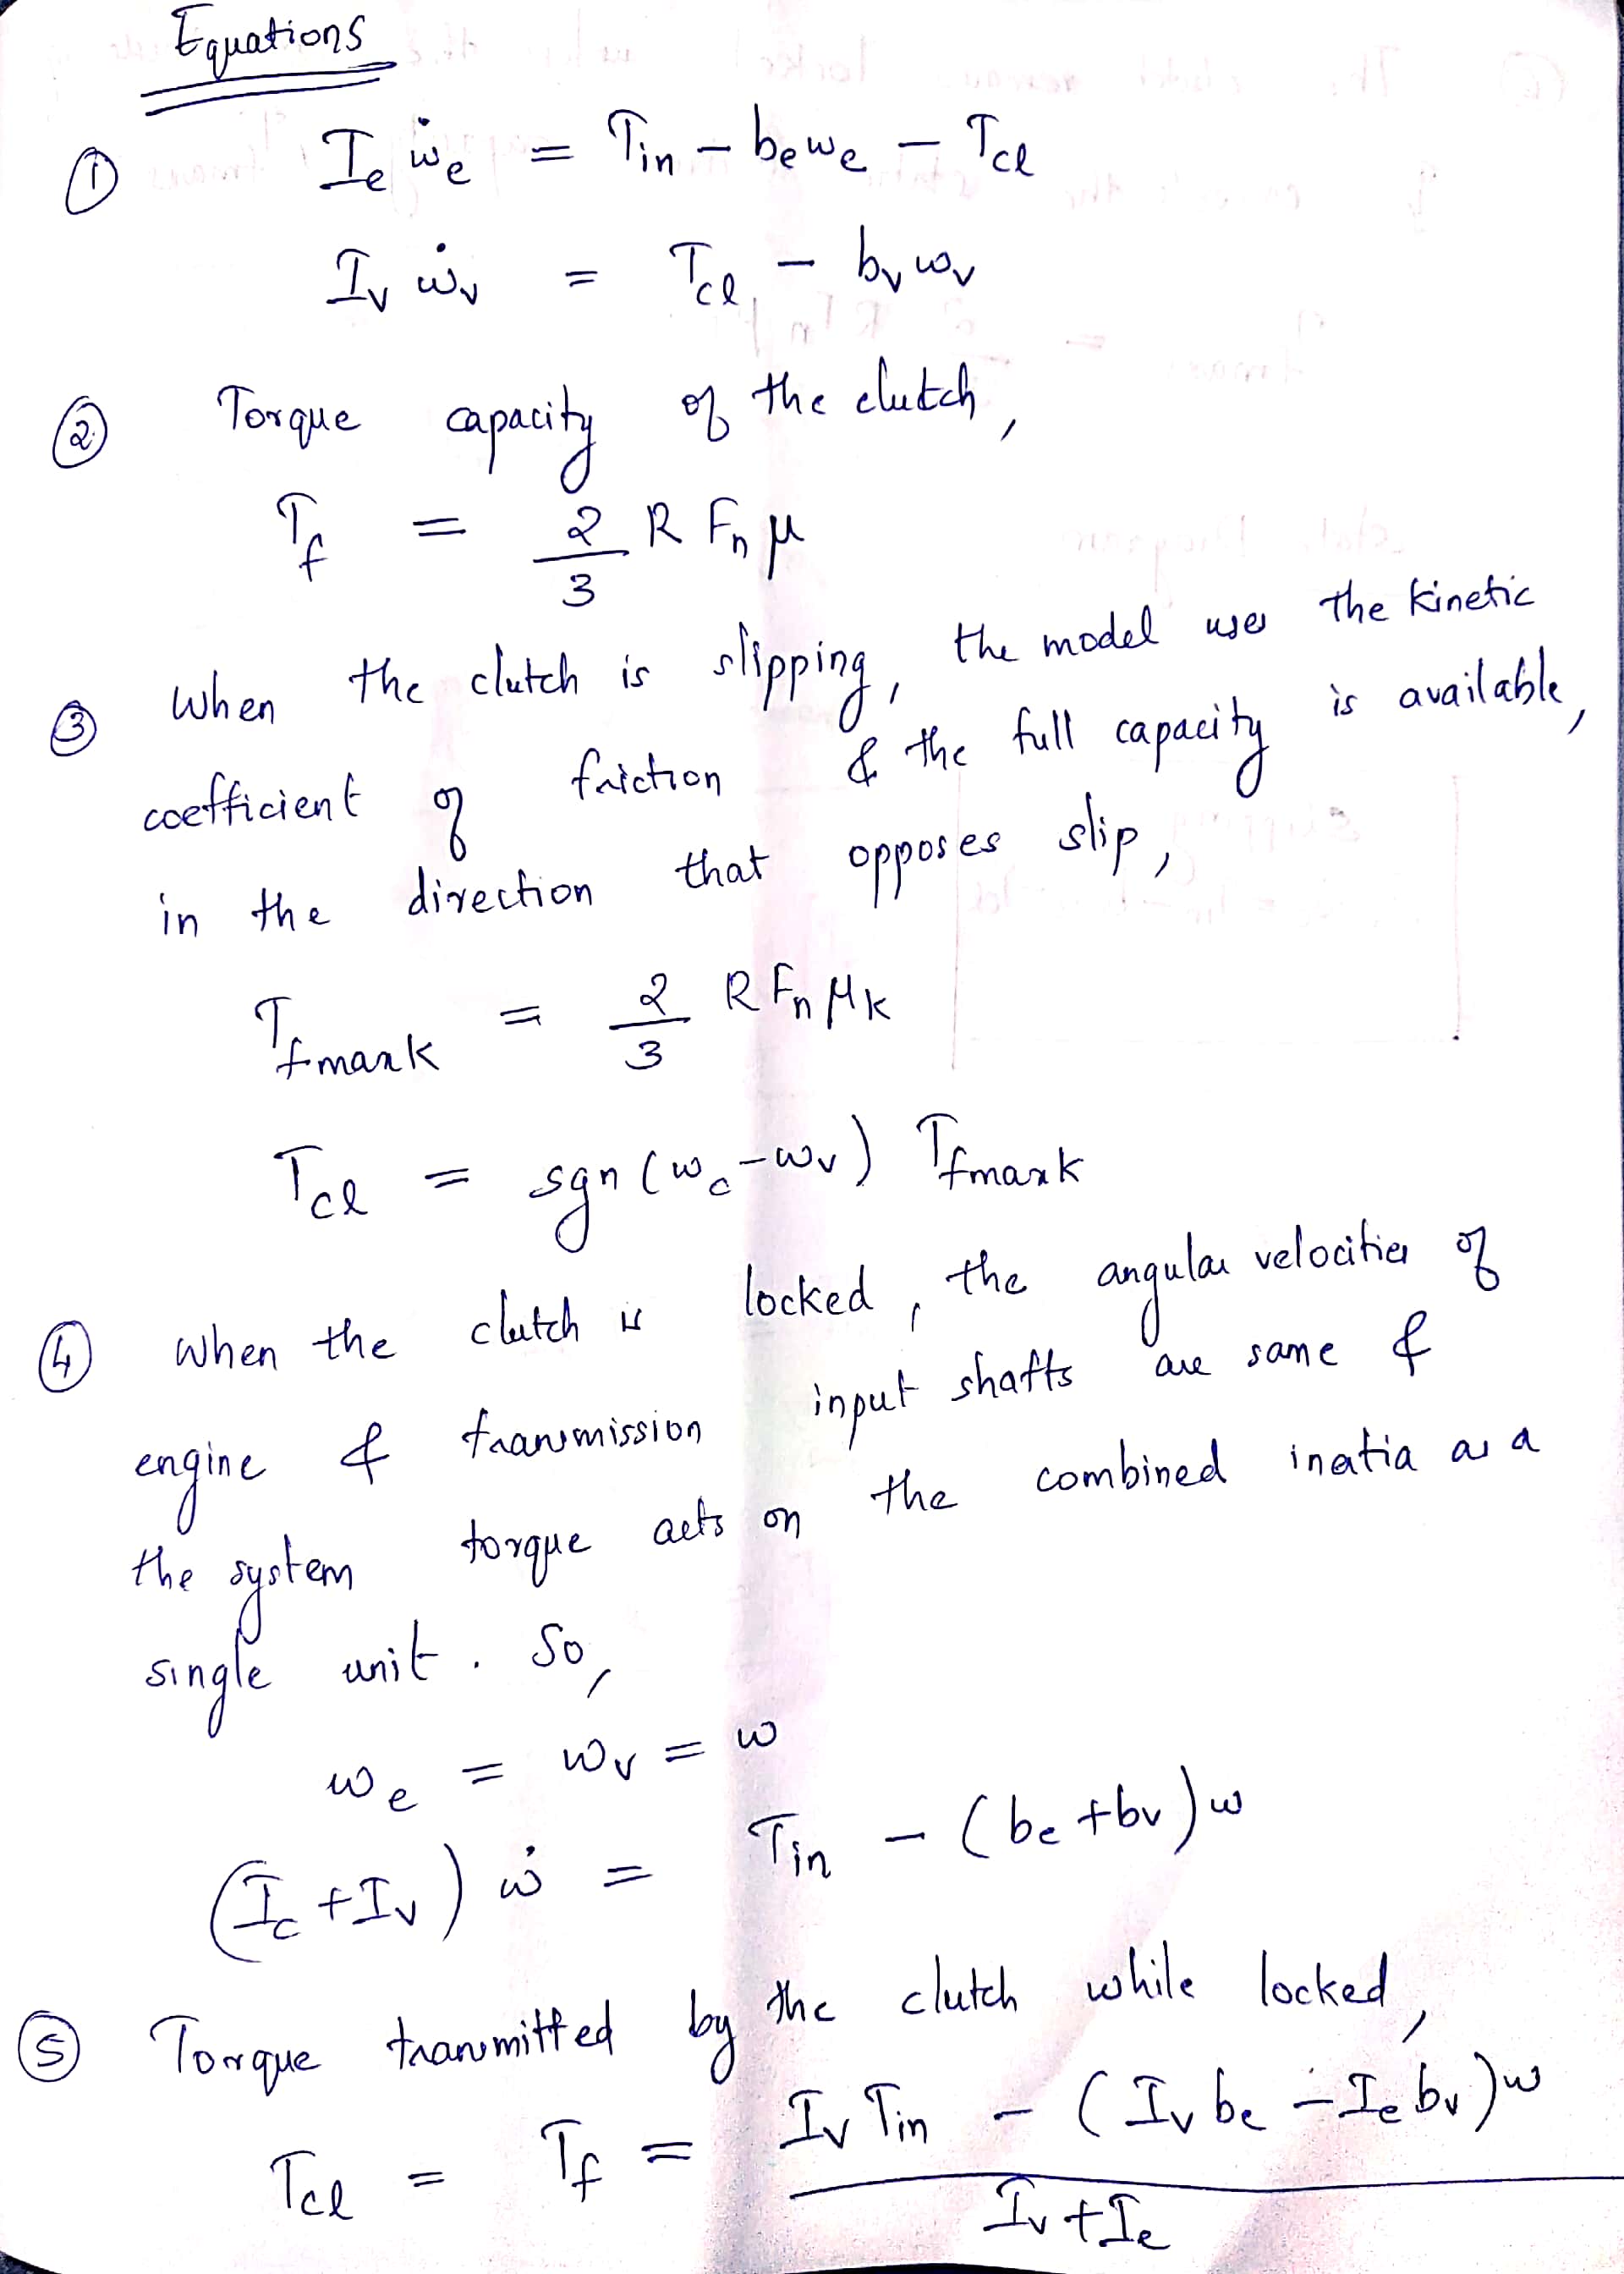 Equations
① I_e ω̇_e = T_in − b_e ω_e − T_cl
I_v ω̇_v = T_cl − b_v ω_v
② Torque capacity of the clutch,
T_f = 2/3 R F_n μ
③ when the clutch is slipping, the model uses the kinetic
coefficient of friction & the full capacity is available,
in the direction that opposes slip,
T_fmaxk = 2/3 R F_n μ_k
T_cl = sgn (ω_c − ω_v) T_fmaxk
④ when the clutch is locked, the angular velocities of
engine & transmission input shafts are same &
the system torque acts on the combined inetia as a
single unit. So,
ω_e = ω_v = ω
(I_c + I_v) ω̇ = T_in − (b_e + b_v) ω
⑤ Torque transmitted by the clutch while locked,
T_cl = T_f = I_v T_in − (I_v b_e − I_e b_v) ω / I_v + I_e